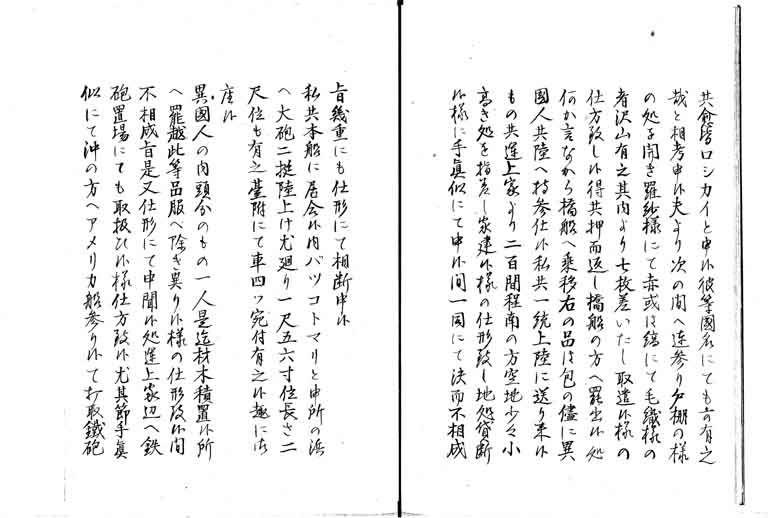 共侖皆ロシカイと申候彼等國名にても可有之
哉と相考申候夫より次の間へ連参り夕棚の様
の処を開き羅紗様にて赤或は縞にて毛織様の
者沢山有之其内より七枚差いたし取遣候様の
仕方致し候得共押而返し橋船の方へ罷出候処
何か言なから橋船へ乗移右の品は包の儘に異
國人共陸へ持参仕候私共一統上陸に送り来候
もの共運上家より二百間程南の方空地少々小
高き処を指差し家建候様の仕形致し地処貸断
候様に手眞似にて申候間一同にて決而不相成
旨幾重にも仕形にて相断申候
私共本船に居合候内バツコトマリと申所の浜
へ大砲二挺陸上け尤廻り一尺五六寸位長さ二
尺位も有之臺附にて車四ツ宛付有之候趣に御
座候
異國人の内頭分のもの一人是迄材木積置候所
へ罷越此等品服へ除き異り候様の仕形致候間
不相成旨是又仕形にて申聞候処運上家辺へ鉄
砲置場にても取扱ひ候様仕方致候尤其節手眞
似にて沖の方へアメリカ船参り候て打取鐵砲